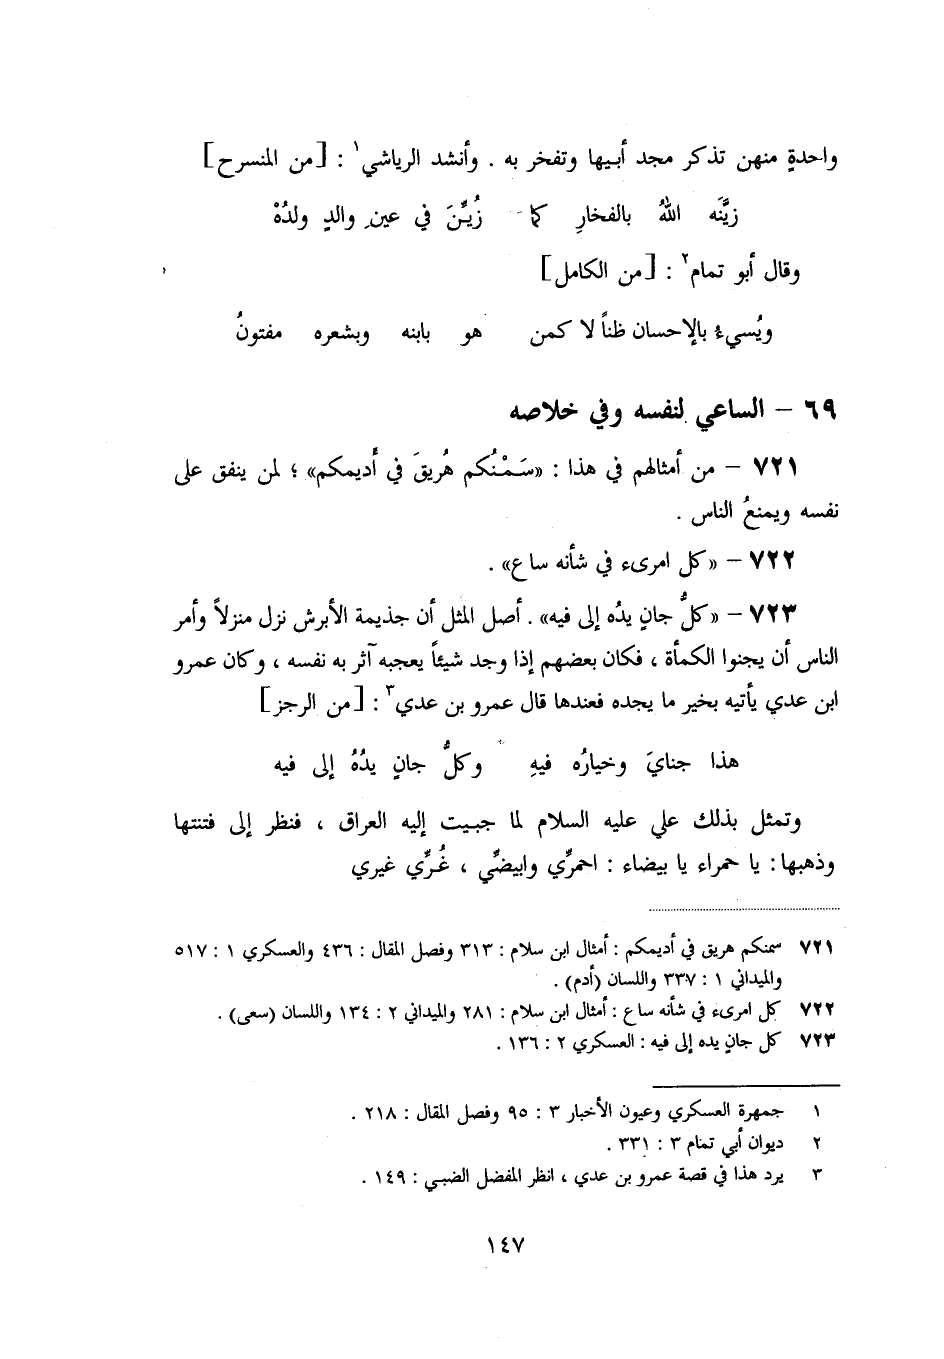 واحدةٍ منهن تذكر مجد أبيها وتفخر به . وأنشد الرياشي١ : [من المنسرح]
زيَّنَه اللهُ بالفخارِ كما زُيِّنَ في عينِ والدٍ ولدُهْ
وقال أبو تمام٢ : [من الكامل]
ويُسيءُ بالإحسان ظناً لا كمن هو بابنه وبشعره مفتونُ
٦٩ – الساعي لنفسه وفي خلاصه
٧٢١ – من أمثالهم في هذا : «سَمْنُكم هُريقَ في أَديمكم» ؛ لمن ينفق على
نفسه ويمنعُ الناس .
٧٢٢ – «كل امرىء في شأنه ساع» .
٧٢٣ – «كلُّ جانٍ يدُه إلى فيه» . أصل المثل أن جذيمة الأبرش نزل منزلاً وأمر
الناس أن يجنوا الكمأة ، فكان بعضهم إذا وجد شيئاً يعجبه آثر به نفسه ، وكان عمرو
ابن عدي يأتيه بخير ما يجده فعندها قال عمرو بن عدي٣ : [من الرجز]
هذا جنايَ وخيارُه فيهِ وكلُّ جانٍ يدُهُ إلى فيه
وتمثل بذلك علي عليه السلام لما جبيت إليه العراق ، فنظر إلى فتنتها
وذهبها: يا حمراء يا بيضاء : احمرِّي وابيضِّي ، غُرِّي غيري
٧٢١ سمنكم هريق في أديمكم : أمثال ابن سلام : ٣١٣ وفصل المقال : ٤٣٦ والعسكري ١ : ٥١٧
والميداني ١ : ٣٣٧ واللسان (أدم) .
٧٢٢ كل امرىء في شأنه ساع : أمثال ابن سلام : ٢٨١ والميداني ٢ : ١٣٤ واللسان (سعى) .
٧٢٣ كل جانٍ يده إلى فيه : العسكري ٢ : ١٣٦ .
١ جمهرة العسكري وعيون الأخبار ٣ : ٩٥ وفصل المقال : ٢١٨ .
٢ ديوان أبي تمام ٣ : ٣٣١ .
٣ يرد هذا في قصة عمرو بن عدي ، انظر المفضل الضبي : ١٤٩ .
١٤٧